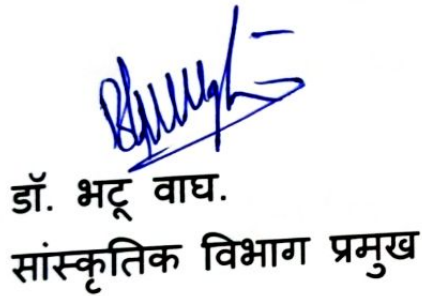 डॉ. भटू वाघ.
सांस्कृतिक विभाग प्रमुख